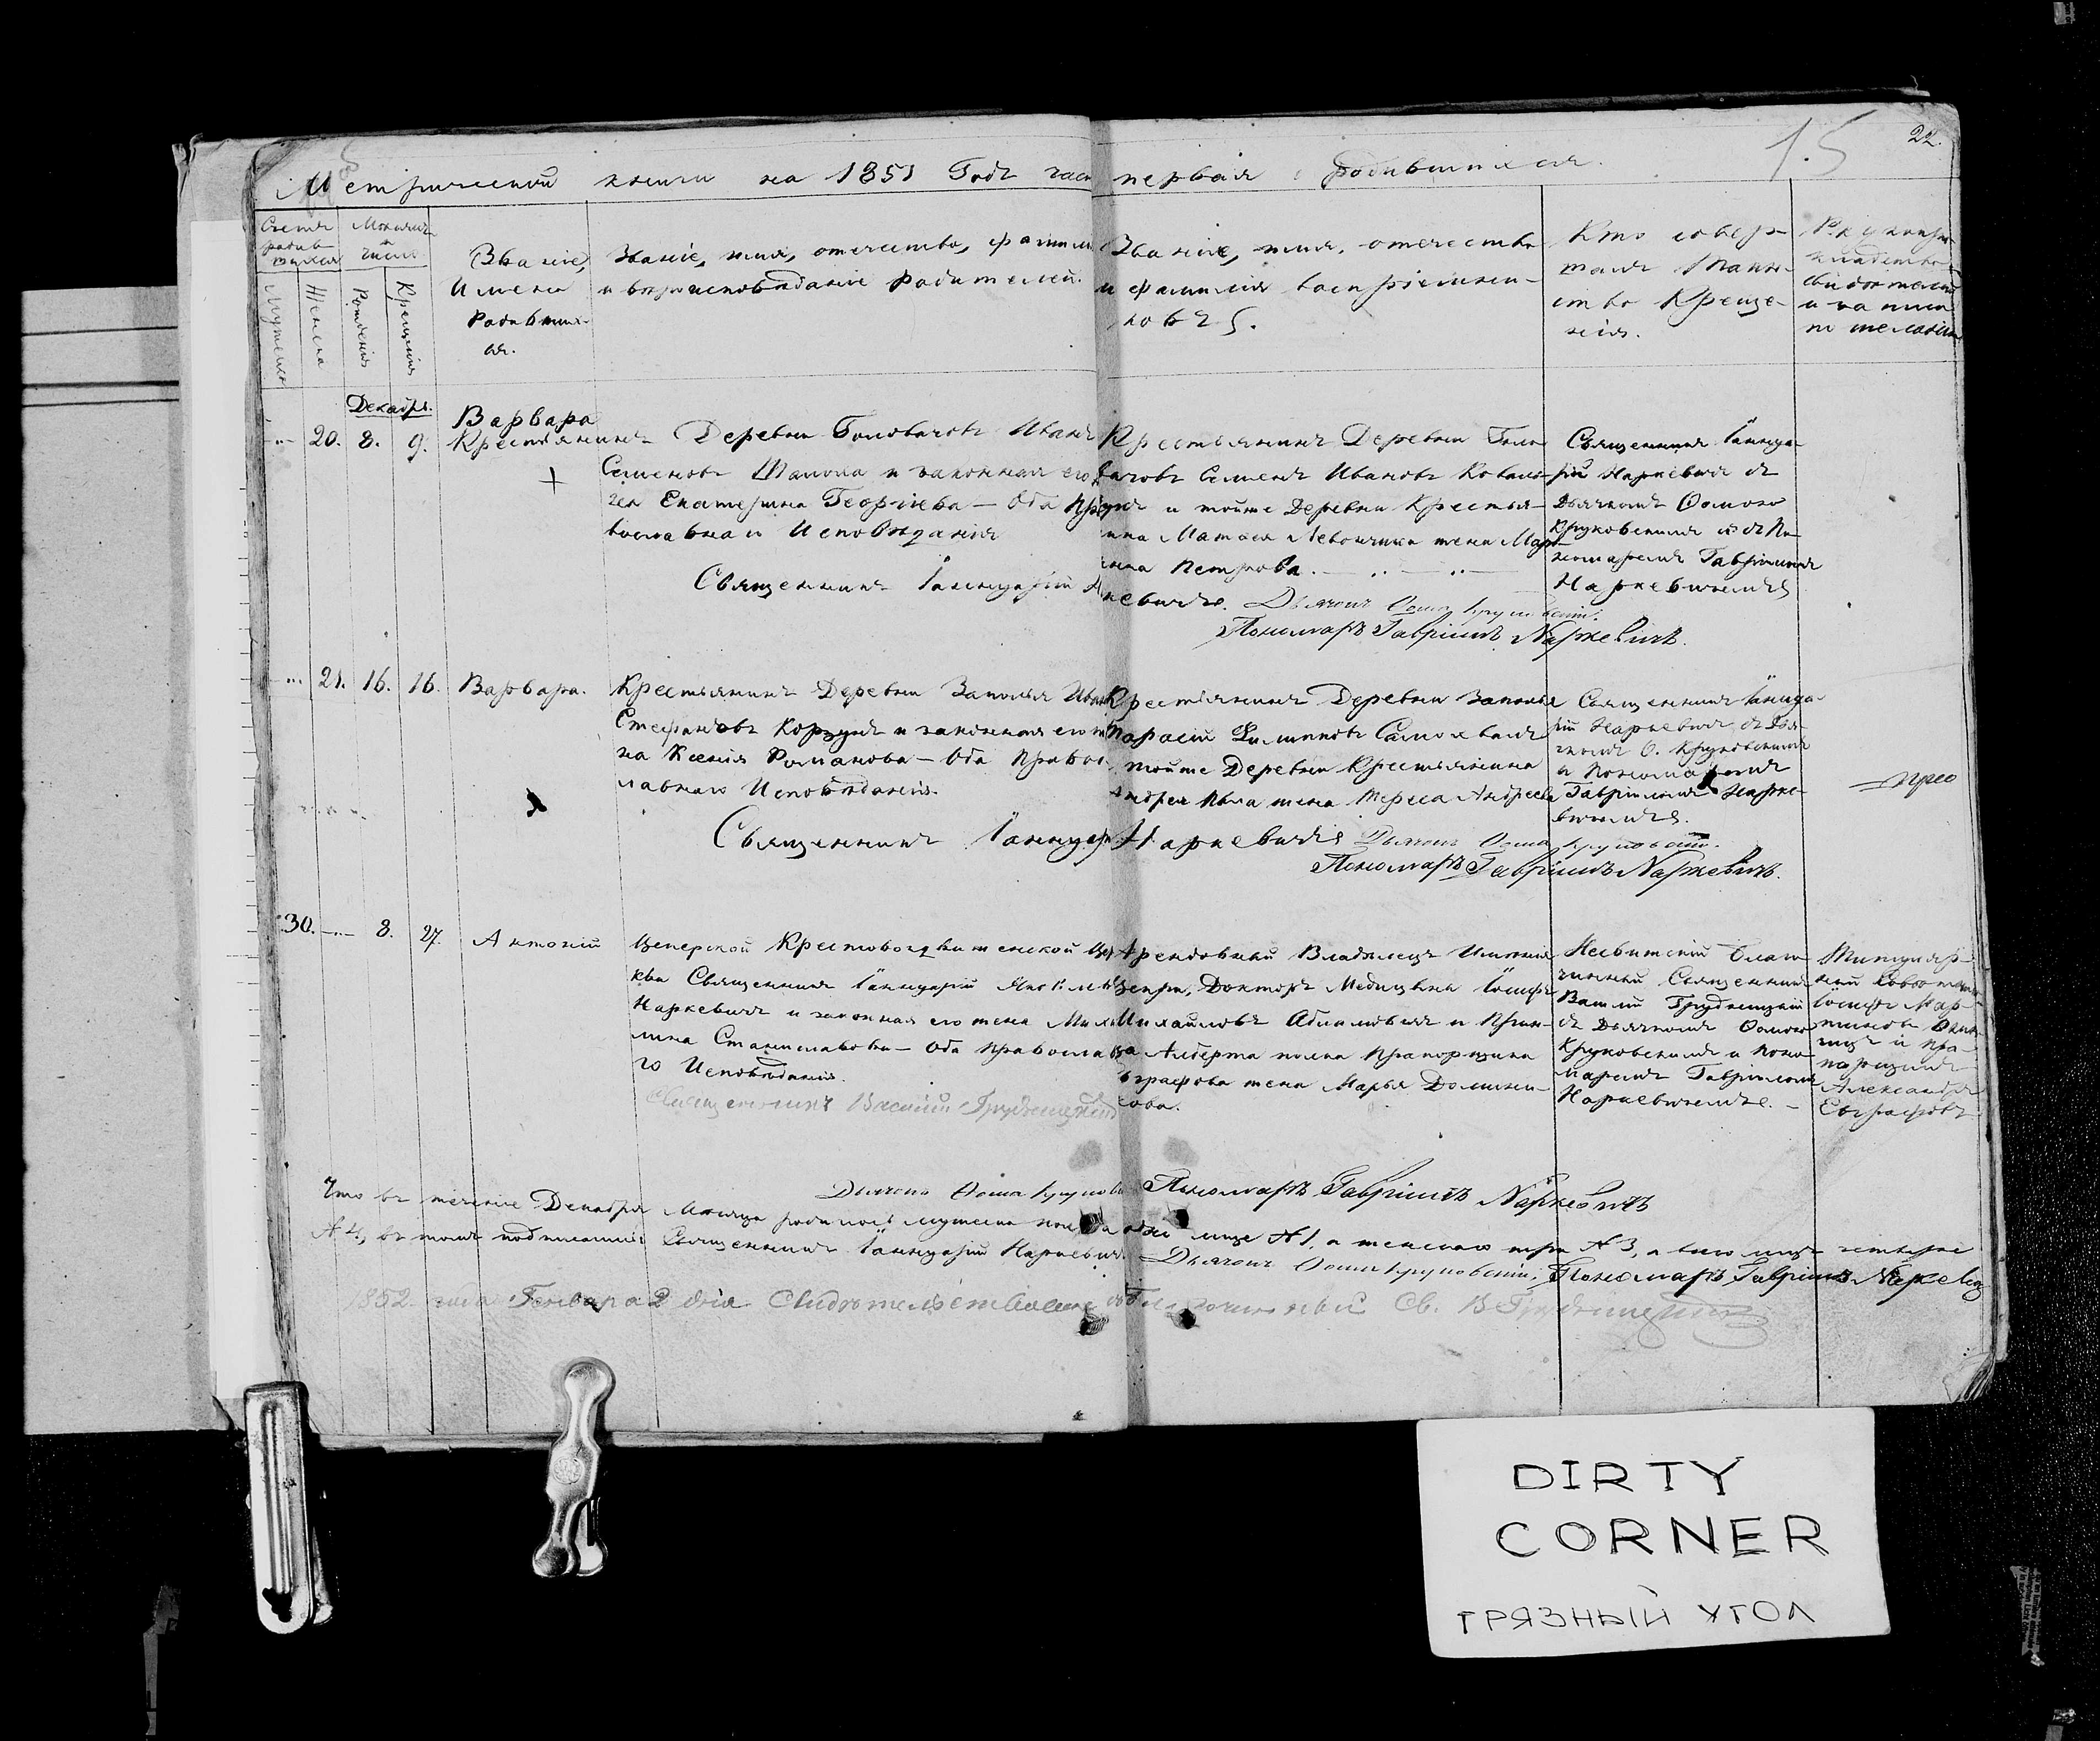 22.
1.5
Метрической книги на 1851 Годъ част первая о родившихся.
Счетъ родив шихся
Мѣсяцъ и число
Мужеска
Женска
Рожденія
Крещенія
Званіе,
Имена
Родивших-
ся.
Званіе, имя, отечество, фамил
и вѣроисповѣданіе родителей.
Званіе, имя, отечество
и фамилія воспріемни-
ковъ.
Кто совер-
шалъ Таин-
ство Креще-
нія.
Рукопри-
кладство
свидѣтелей
о записи
по желанію
Декабрь.
20. 8. 9.
Варвара
Крестьянинъ Деревни Головачовъ Иванъ
Семеновъ и законная его
Екатерина Георгіева — Оба Пра
вославнаго Исповѣданія
Священникъ Іаннуарій
Крестьянинъ Деревни Голо
вачовъ Семенъ Ивановъ
и тойже Деревни Крестья-
нина жена Мар
Петрова.
Дьячокъ Ѳома Круковскій.
Пономарь Гавріилъ Наркевичъ.
Священникъ Іаннуа-
рій Наркевичъ съ
Дьячкомъ Ѳомою
Круковскимъ и съ По-
номаремъ Гавріиломъ
Наркевичемъ
21. 16. 16. Варвара.
Крестьянинъ Деревни Заполья Иван
Стефановъ Корзунъ и законная его же
на Ксенія Романова — Оба Правос
лавнаго Исповѣданія.
Священникъ Іаннуарій Наркевичъ
Крестьянинъ Деревни Заполья
Тарасій
тойже Деревни Крестьянина
Андрея жена Тереса Андреева
Дьячокъ Ѳома Круковскій.
Пономарь Гавріилъ Наркевичъ.
Священникъ Іаннуа-
рій Наркевичъ съ Дья-
чкомъ Ѳ. Круковскимъ
и Пономаремъ
Гавріиломъ Нарке-
вичемъ.
30. 8. 27. Антоній
Цеперской Крестовоздвиженской Цер
кви Священникъ Іаннуарій
Наркевичъ и законная его жена Миха
лина Станиславова — Оба Православна
го Исповѣданія.
Священникъ Василій Грудзицкій
Арендовный Владѣлецъ Имѣнія
Цепры, Докторъ Медицины Іосифъ
Михайловъ и Прин-
ца Алберта полка Прапорщика
Евграфова жена Марья Домини-
кова.
Несвижскій Благо-
чинный Священникъ
Василій Грудзицкій
съ Дьячкомъ Ѳомою
Круковскимъ и Поно-
маремъ Гавріиломъ
Наркевичемъ. —
Титуляр-
ный Совѣтникъ
Іосифъ Мар-
тиновъ
и Пра-
порщикъ
Александръ
Евграфовъ
Дьячокъ Ѳома Круковскій Пономарь Гавріилъ Наркевичъ
Что въ теченіе Декабря Мѣсяца родилось мужеска пола одно лице №1, а женскаго три №3, а всего лицъ четыре
№4, въ томъ подписаніи Священникъ Іаннуарій Наркевичъ Дьячокъ Ѳома Круковскій, Пономарь Гавріилъ Наркевичъ
1852 года Генваря 2 дня Свидѣтельствовалъ Благочинный Св. В Грудзицкій
DIRTY
CORNER
ГРЯЗНЫЙ УГОЛ